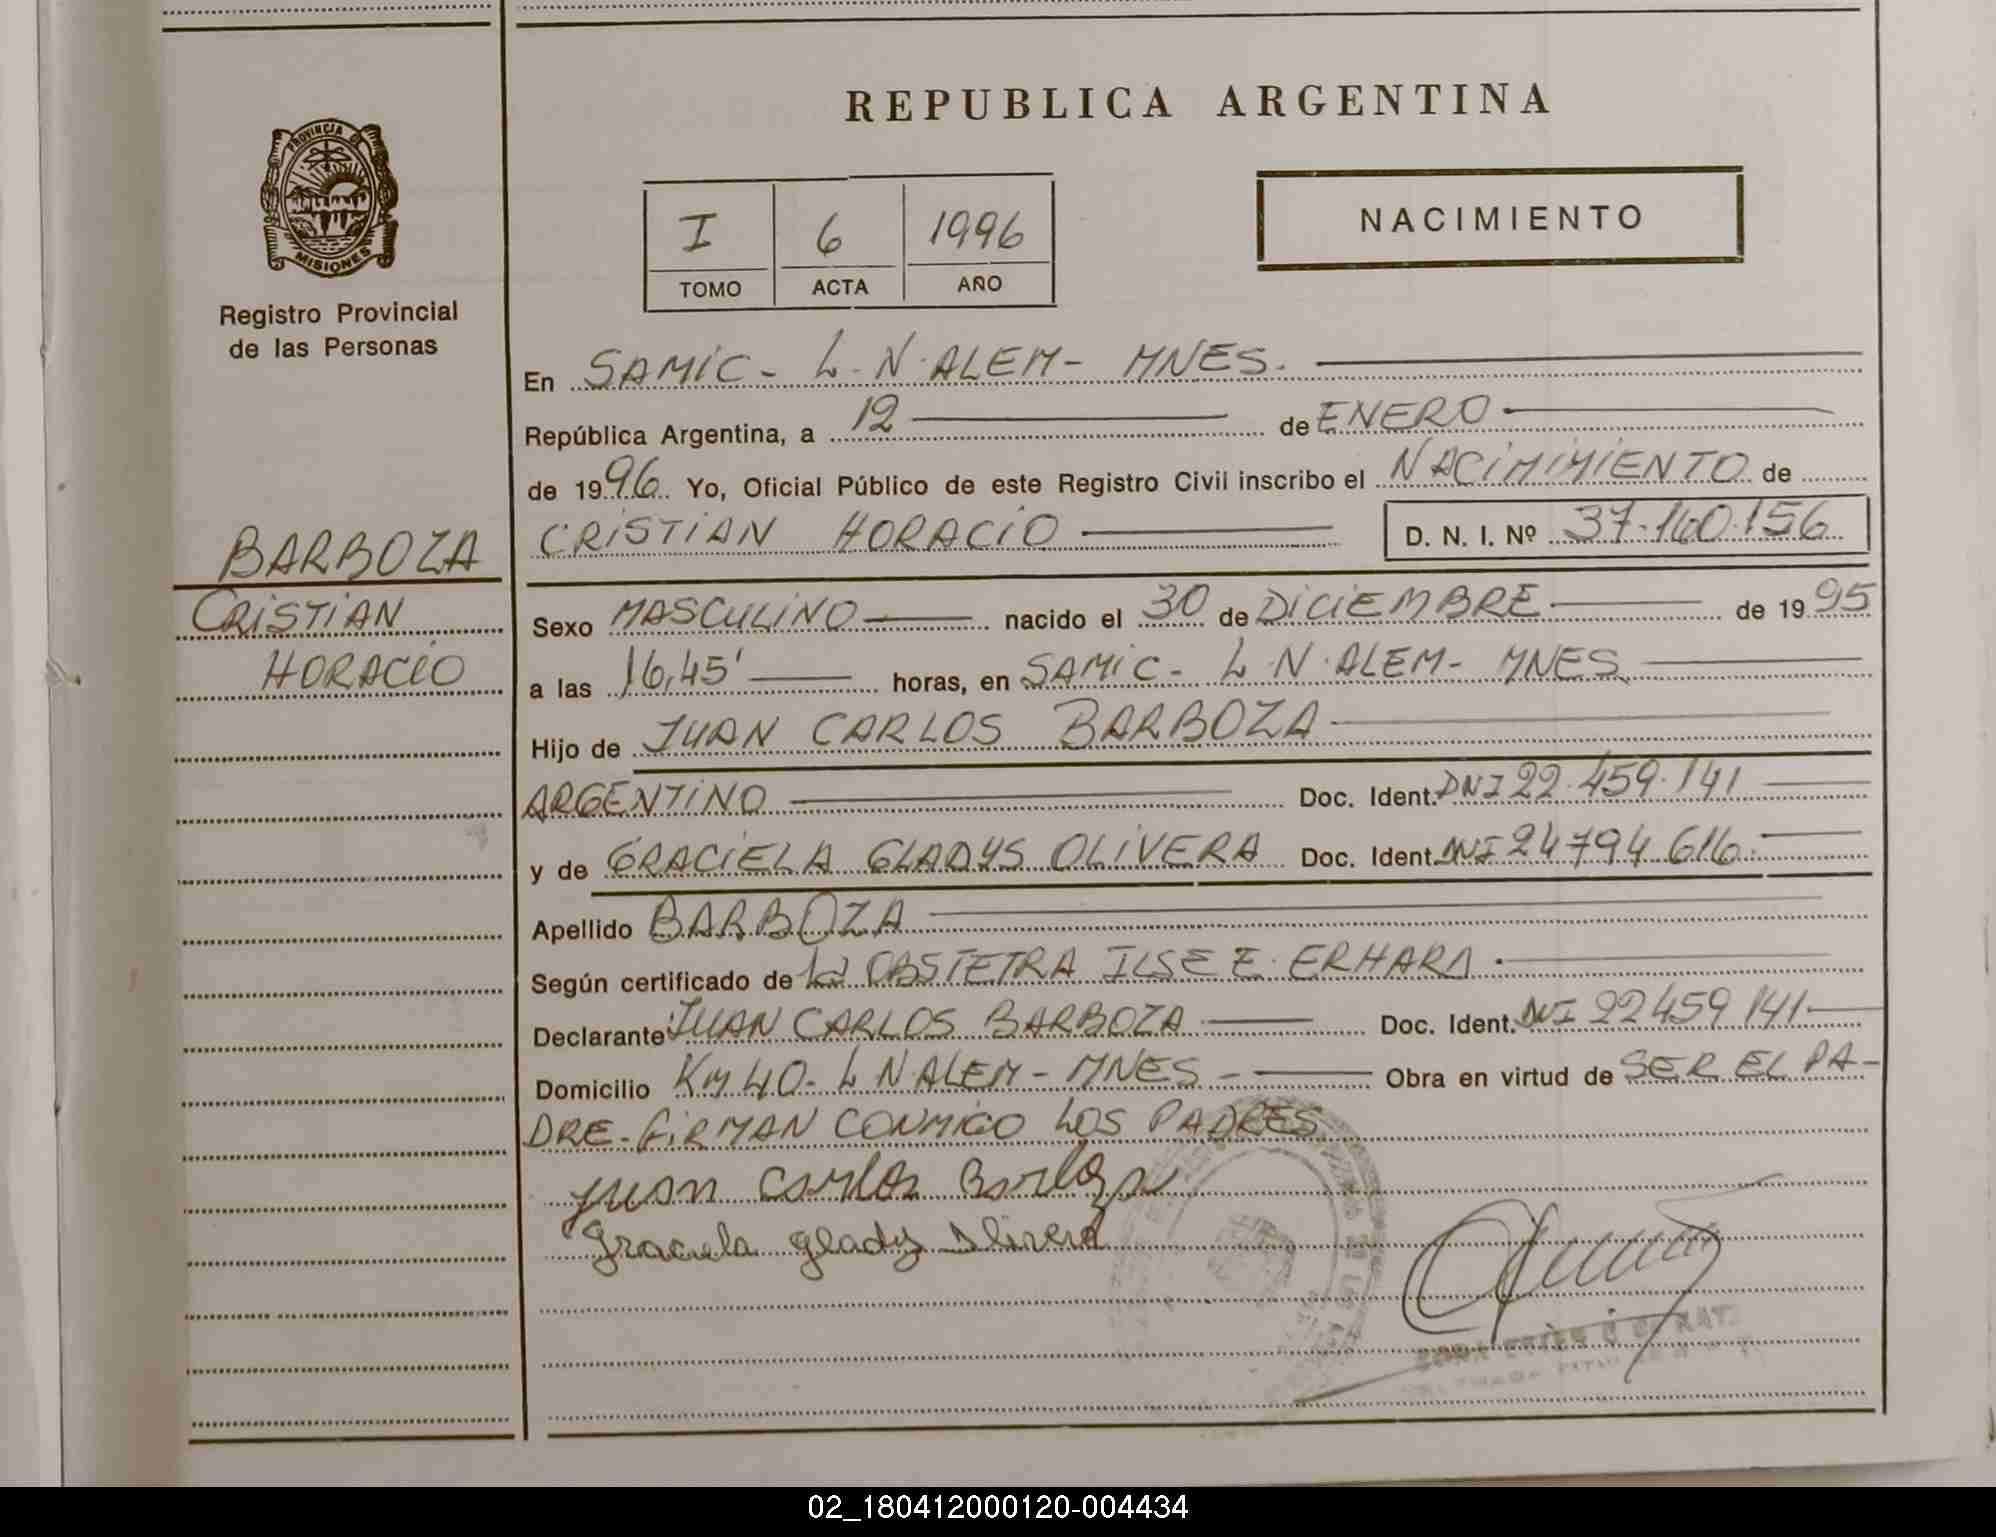 REPUBLICA ARGENTINA
PROVINCIA DE
MISIONES
Registro Provincial
de las Personas
I 6 1996
TOMO ACTA AÑO
NACIMIENTO
En SAMIC - L. N. ALEM - MNES.
República Argentina, a 12 de ENERO
de 1996 Yo, Oficial Público de este Registro Civil inscribo el NACIMIMIENTO de
CRISTIAN HORACIO D. N. I. Nº 37.160.156
BARBOZA
CRISTIAN
HORACIO
Sexo MASCULINO nacido el 30 de DICIEMBRE de 1995
a las 16,45' horas, en SAMIC - L. N. ALEM - MNES.
Hijo de JUAN CARLOS BARBOZA
ARGENTINO Doc. Ident. DNI 22.459.141
y de GRACIELA GLADYS OLIVERA Doc. Ident. DNI 24794616.
Apellido BARBOZA
Según certificado de la OBSTETRA ILSE E. ERHARD.
Declarante JUAN CARLOS BARBOZA Doc. Ident. DNI 22459141
Domicilio KM 40 - L N ALEM - MNES - Obra en virtud de SER EL PA-
DRE - FIRMAN CONMIGO LOS PADRES
Juan Carlos Barboza
Graciela Glady Olivera
02_180412000120-004434